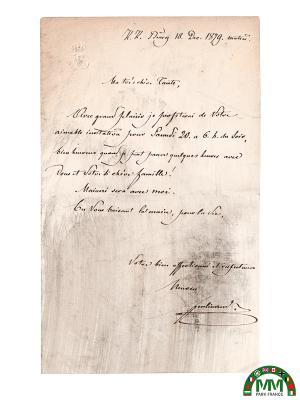 18. Dec. 1879. matin.
Ma très chère Tante,
Avec grand plaisir je profiterai de Votre
aimable invitation pour Samedi 20. a 6. h. du soir,
bien heureux quand je puis passer quelques heures avec
Vous et Votre chère famille!
sera avec moi.
En Vous baisant la main, pour la vie,
Votre bien affectionné et
Neveu
MM
PARK FRANCE